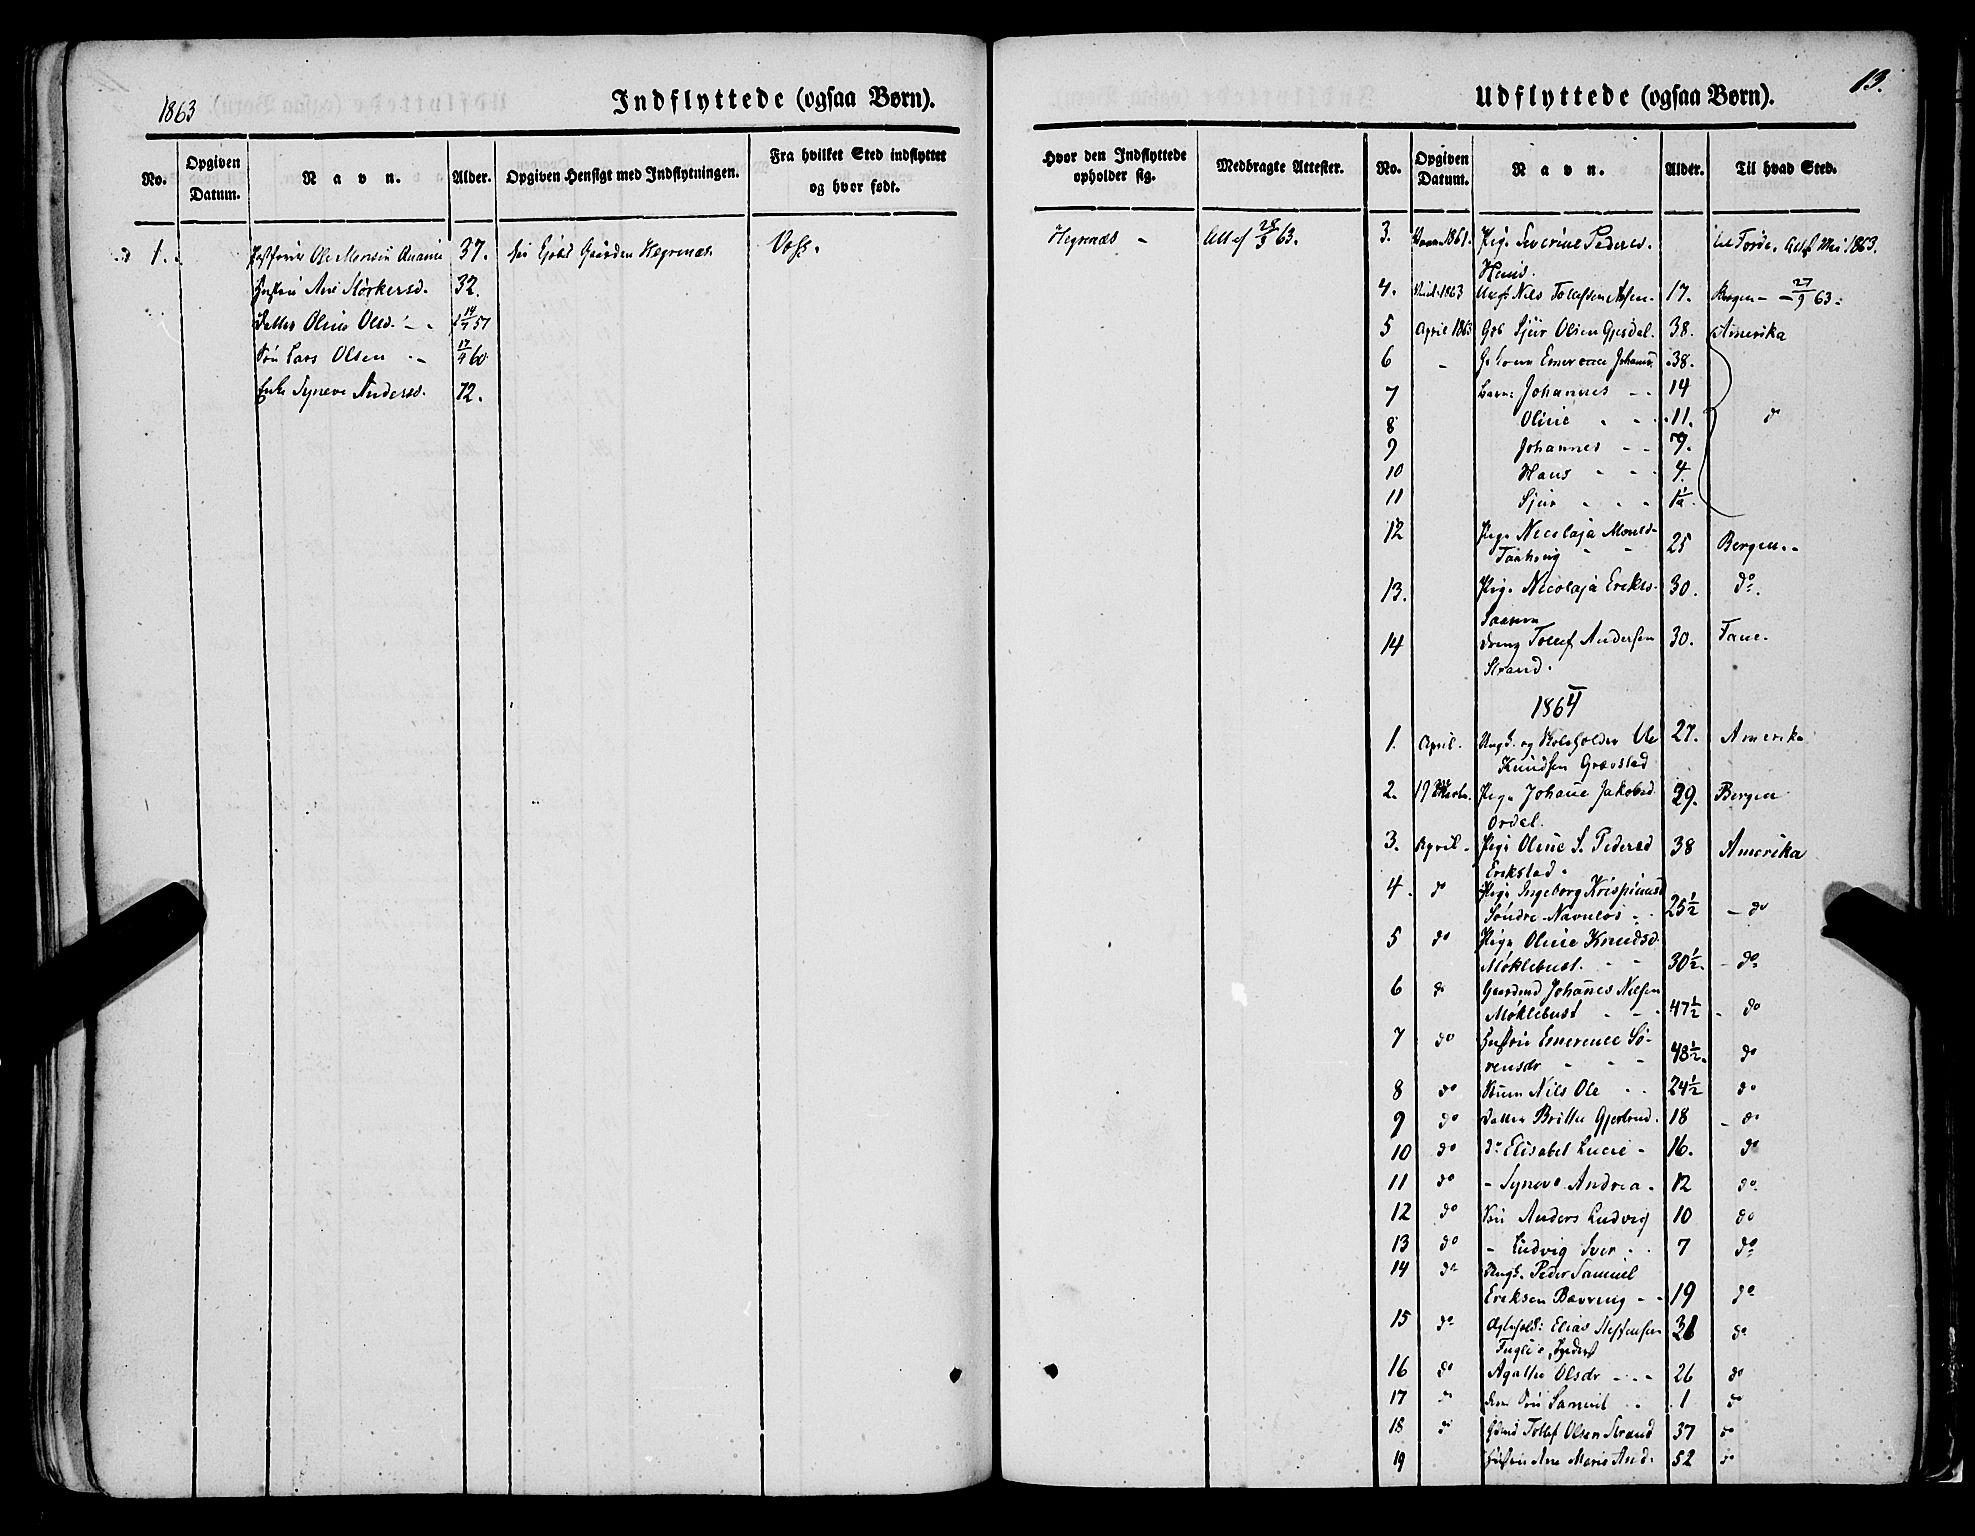 1863
Indflyttede (ogsaa Børn).
No.
Opgiven Datum.
Navn.
Alder.
Opgiven Hensigt med Indflytningen.
Fra hvilket Sted indflyttet og hvor født.
1. Ole Monsen 37. Gaarden Hegrenæs Voss.
Hustru Ane Størkersd. 32.
Datter Oline Olsd. 57
Søn Lars Olsen 17/9 60
Enke Syneve Andersd. 72.
Udflyttede (ogsaa Børn).
13.
Hvor den Indflyttede opholder sig.
Medbragte Attester.
No.
Opgiven Datum.
Navn.
Alder.
Til hvad Sted.
Hegrenæs - Att af 28/3 63.
3. 1861. Pige Severine Pedersd. til Førde, Att af Mai 1863.
4. 1863 Ungk. Nils Tollefsen 17. Bergen - 27/9 63.
5 April 1863 Gbr Sjur Olsen Gjesdal. 38. Amerika
6 - Emerence Johans 38.
7 Børn: Johannes - - 14
8 Oline - - 11. do
9 Johannes - - 7.
10 Hans - - 4.
11 Sjur - - 1/2.
12 Pige Nicolaja Monsd.
25 Bergen. -
13. Pige Nicolaja Eriksd. 30. do.
14 Dreng Tollef Andersen 30. Fane.
Strand.
1864
1. April. Ungk. og Skoleholder Ole 27. Amerika
Knudsen Gravstad
2. 19 Marts. Pige Johane Jakobsd. 29. Bergen
Ordal.
3. April. Pige Oline S. Pedersd 38 Amerika
Erikstad.
4. do Pige Ingeborg Krispinusd
Søndre Navnløs - 25½ - do
5 do Pige Oline Knudsd.
Møklebust. - - 30½. - do
6 do Gaardmd Johanes Nilsen
Møklebust - - 47½ - do
7 do Hustru Emerence Sø-
rensdr - - 48½. do
8 do Søn Nils Ole - - 24½ do
9 do Datter Brithe Gjertrud. 18 - do
10 do do Elisabet Lucie - 16. do
11 do - Syneve Andrea - 12 do
12 do Søn Anders Ludvig 10 do
13 do - Ludvig Iver - - 7 do
14 do Ungk. Peder Samuel
Eriksen Bævring - - 19 do
15 do Elias Steffensen 31 do
16 do Agathe Olsdr - - - 26 do
17 do Søn Samuel - - 1 do
18 do Gdmd Tollef Olsen Strand 37 do
19 Hustru Ane Marie And. 52 do